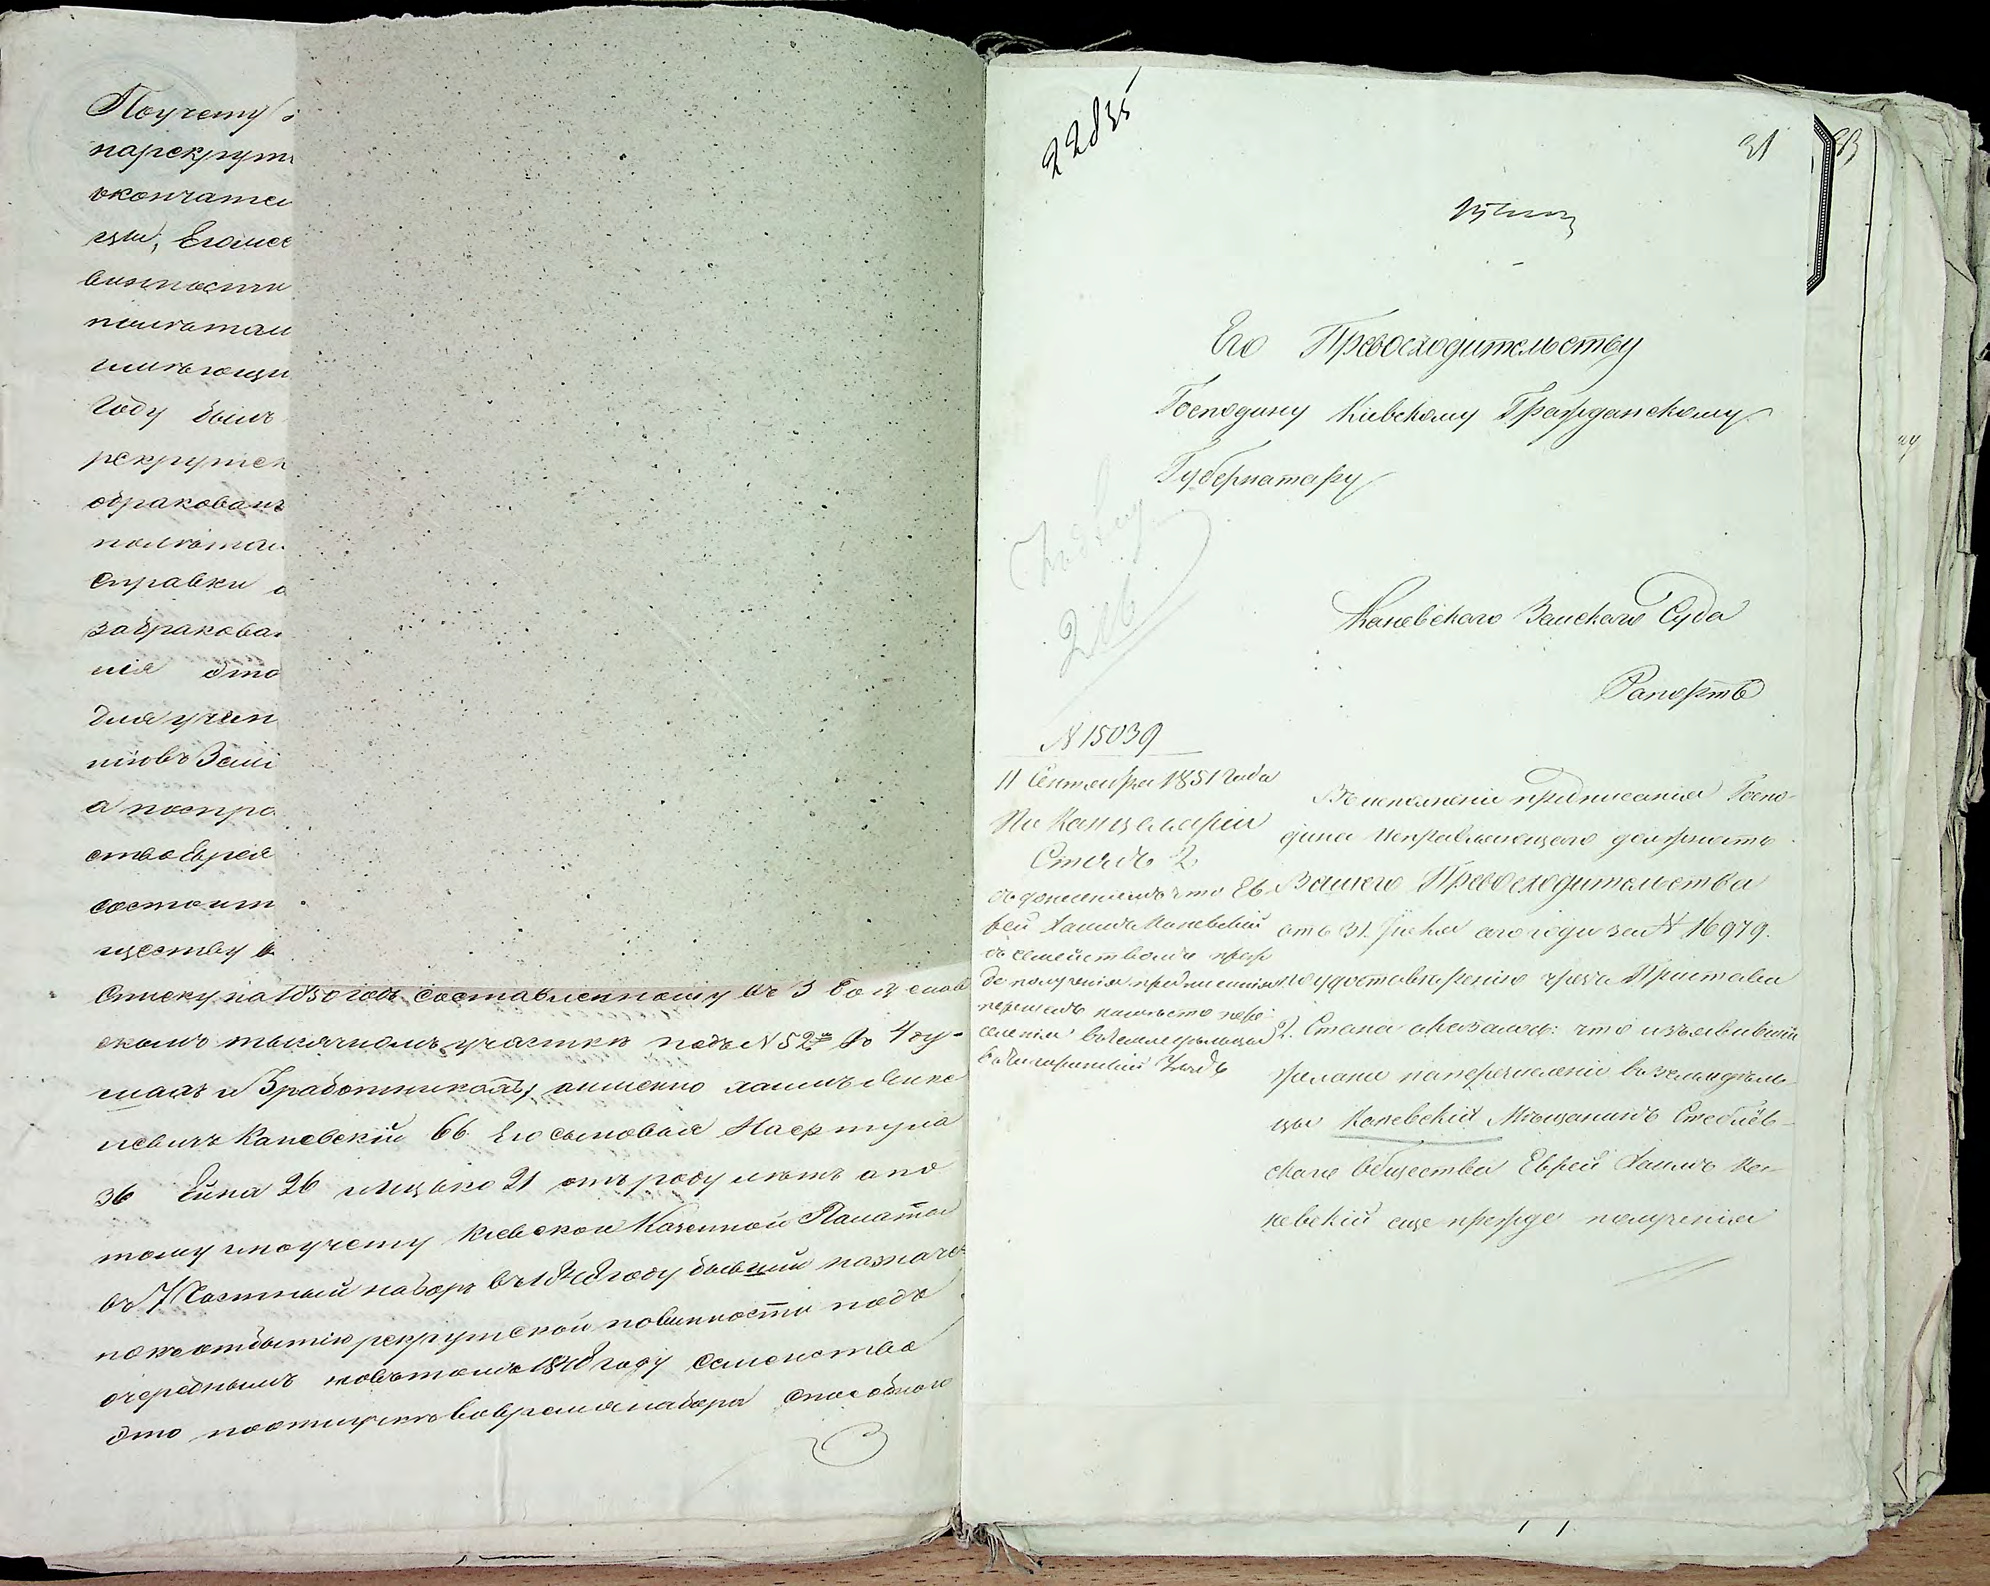 Поучему
нарекрут
окончател
цы, Егомес
винности
палатам
имеющи
году былъ
рекрутск
обракованъ
палатою
справки о
забракован
нія это
для учин
никовъ Земл
а поспра
ство Еврея
состоит
ществу в
списку на 1850 годъ составленному въ 3 Бо
скомъ тысячномъ участке подъ N 52м въ 4 ду-
шахъ и 3 работникахъ, аименно Хаимъ Лейбо
невичъ Каневскій 66 Его сыновья
36 Ейна 26 и Ицько 21 отъ роду летъ а по
тому ипоучету Кіевской Казенной Палаты
въ 7 Частный наборъ въ 1848 году бывший назначе
нокъ отбытію рекрутской повинности подъ
очереднымъ новътомъ 1848 году Семейство
это вовремя набора способного
22835
31
Его Превосходительству
Господину Кіевскому Гражданскому
Губернатору
Каневскаго Земскаго Суда
Рапортъ
N 15039
11 Сентября 1851 года
По Канцеляріи
Столъ 2
съ донесеніемъ что Ев
рей Хаимъ Каневскій
съ семействомъ преж
де полученія предписанія
перешелъ наместо пере
селенія въ земледельцы
Уездъ
Во исполненіе предписанія Госпо-
дина Исправляющаго должность
Вашего Превосходительства
отъ 31 Іюля сего года за N 16979.
по удостоверенію чрезъ Пристава
2. Стана оказалось: что изъявившій
желаніе наперечисленіе въ земледель-
цы Каневскій Мещанинъ Стеблев-
скаго Общества Еврей Хаимъ Ка-
невскій еще прежде полученія